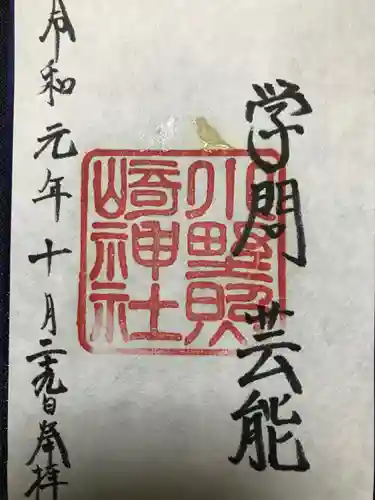 学問芸能
小野照
崎神社
令和元年十月二十九日奉拝